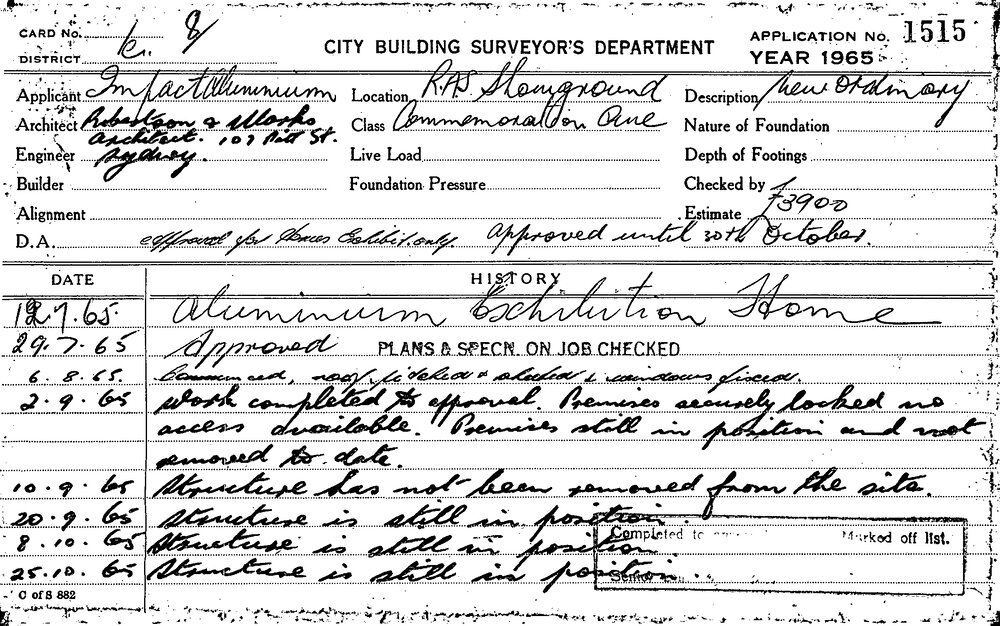 CARD No. 8
DISTRICT
CITY BUILDING SURVEYOR'S DEPARTMENT
APPLICATION No. 1515
YEAR 1965
Applicant Impact Aluminium
Location RAS Showground
Description New Ordinary
Architect Robertson & Marks
Architect. 107 Pitt St.
Sydney.
Class Commemoration Ave
Nature of Foundation
Engineer
Live Load
Depth of Footings
Builder
Foundation Pressure
Checked by
Alignment
Estimate £3900
D.A. approval for Homes Exhibit. only. Approved until 30th October.
DATE HISTORY
12.7.65. Aluminium Exhibition Home
29.7.65 Approved PLANS & SPECN. ON JOB CHECKED
6.8.65. Commenced, roof pitched & sheeted & windows fixed.
2.9.65 Work completed to approval. Premises securely locked no
access available. Premises still in position and not
removed to date.
10.9.65 Structure has not been removed from the site.
20.9.65 Structure is still in position.
8.10.65 Structure is still in position.
25.10.65 Structure is still in position.
Completed to Marked off list.
C of S 882